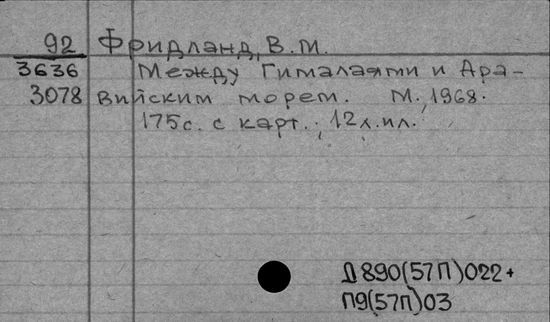 92 Фридланд, В.М.
3636 Между Гималаями и Ара-
3078 вийским морем. М., 1968.
175с. с карт.; 12л.ил.
Д890(57П)022+
П9(57П)03